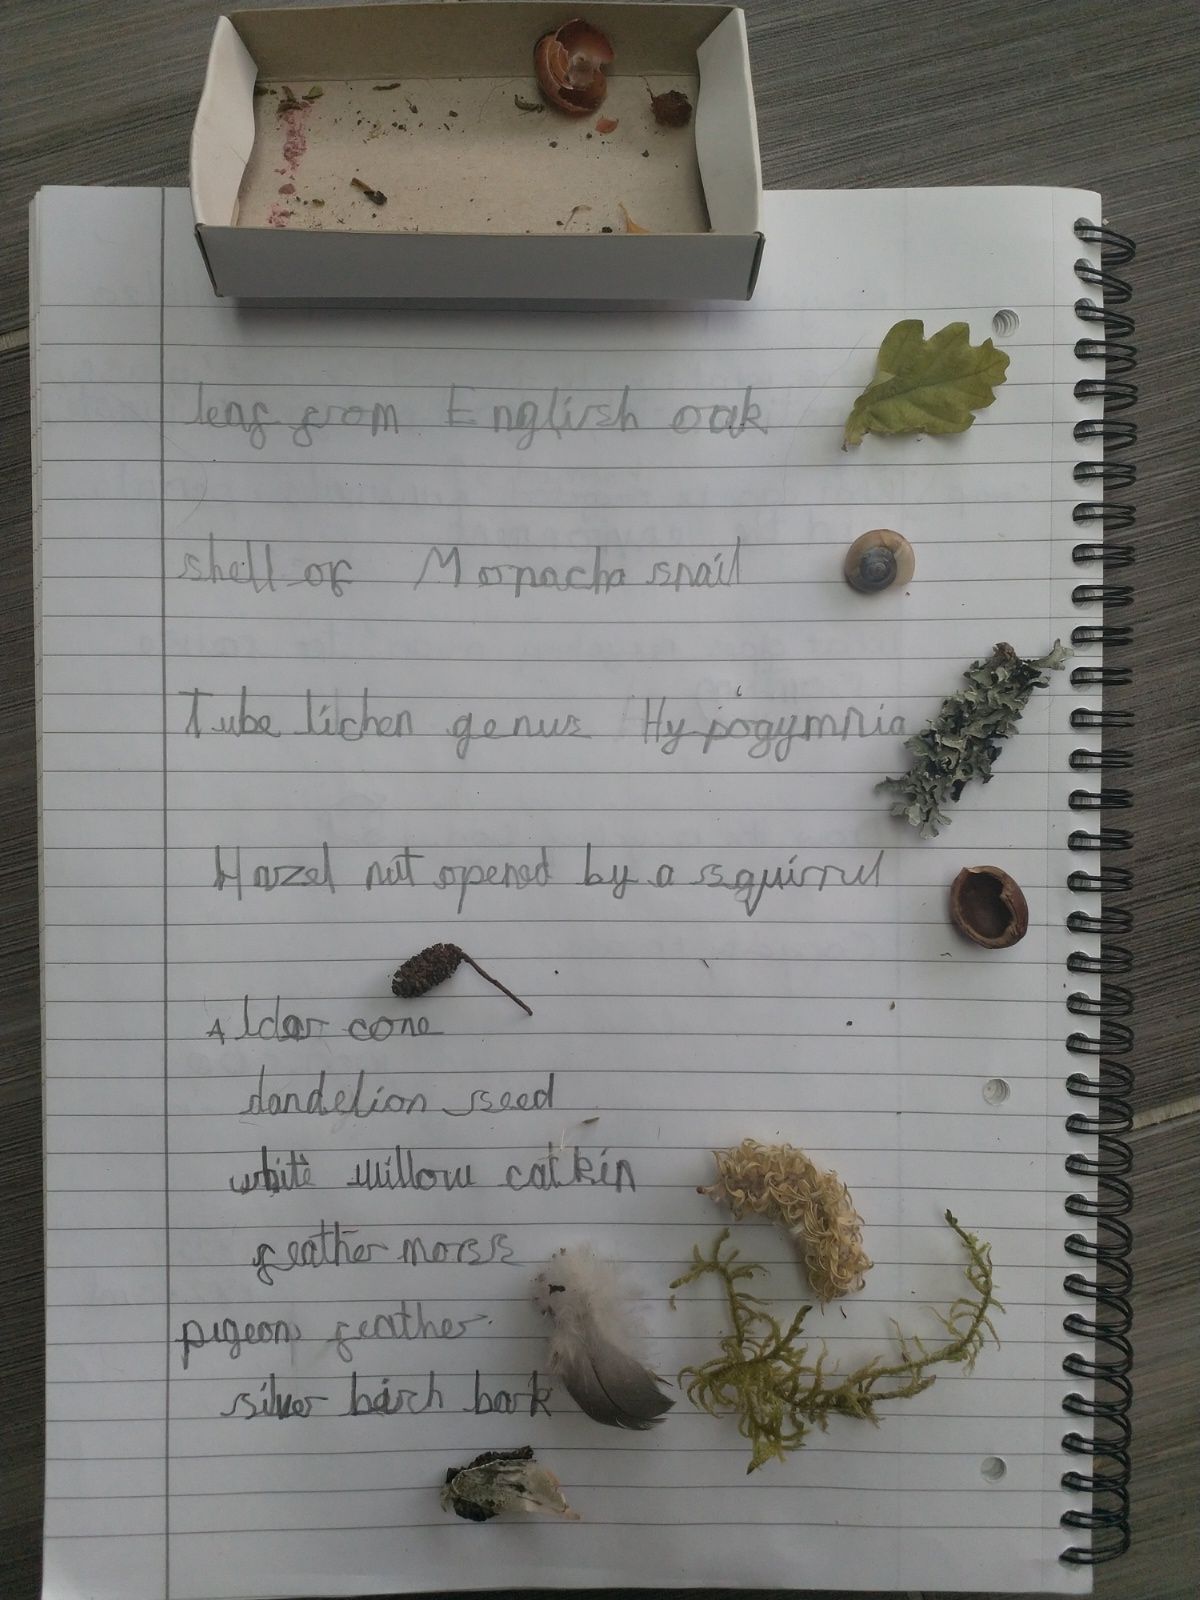 leaf from English oak
shell of Mopnacha snail
Tube lichen genus Hypogymnia
Hazel nut opened by a squirrel
Alder cone
dandelion seed
white willow catkin
feather moss
pigeon feather
silver birch bark